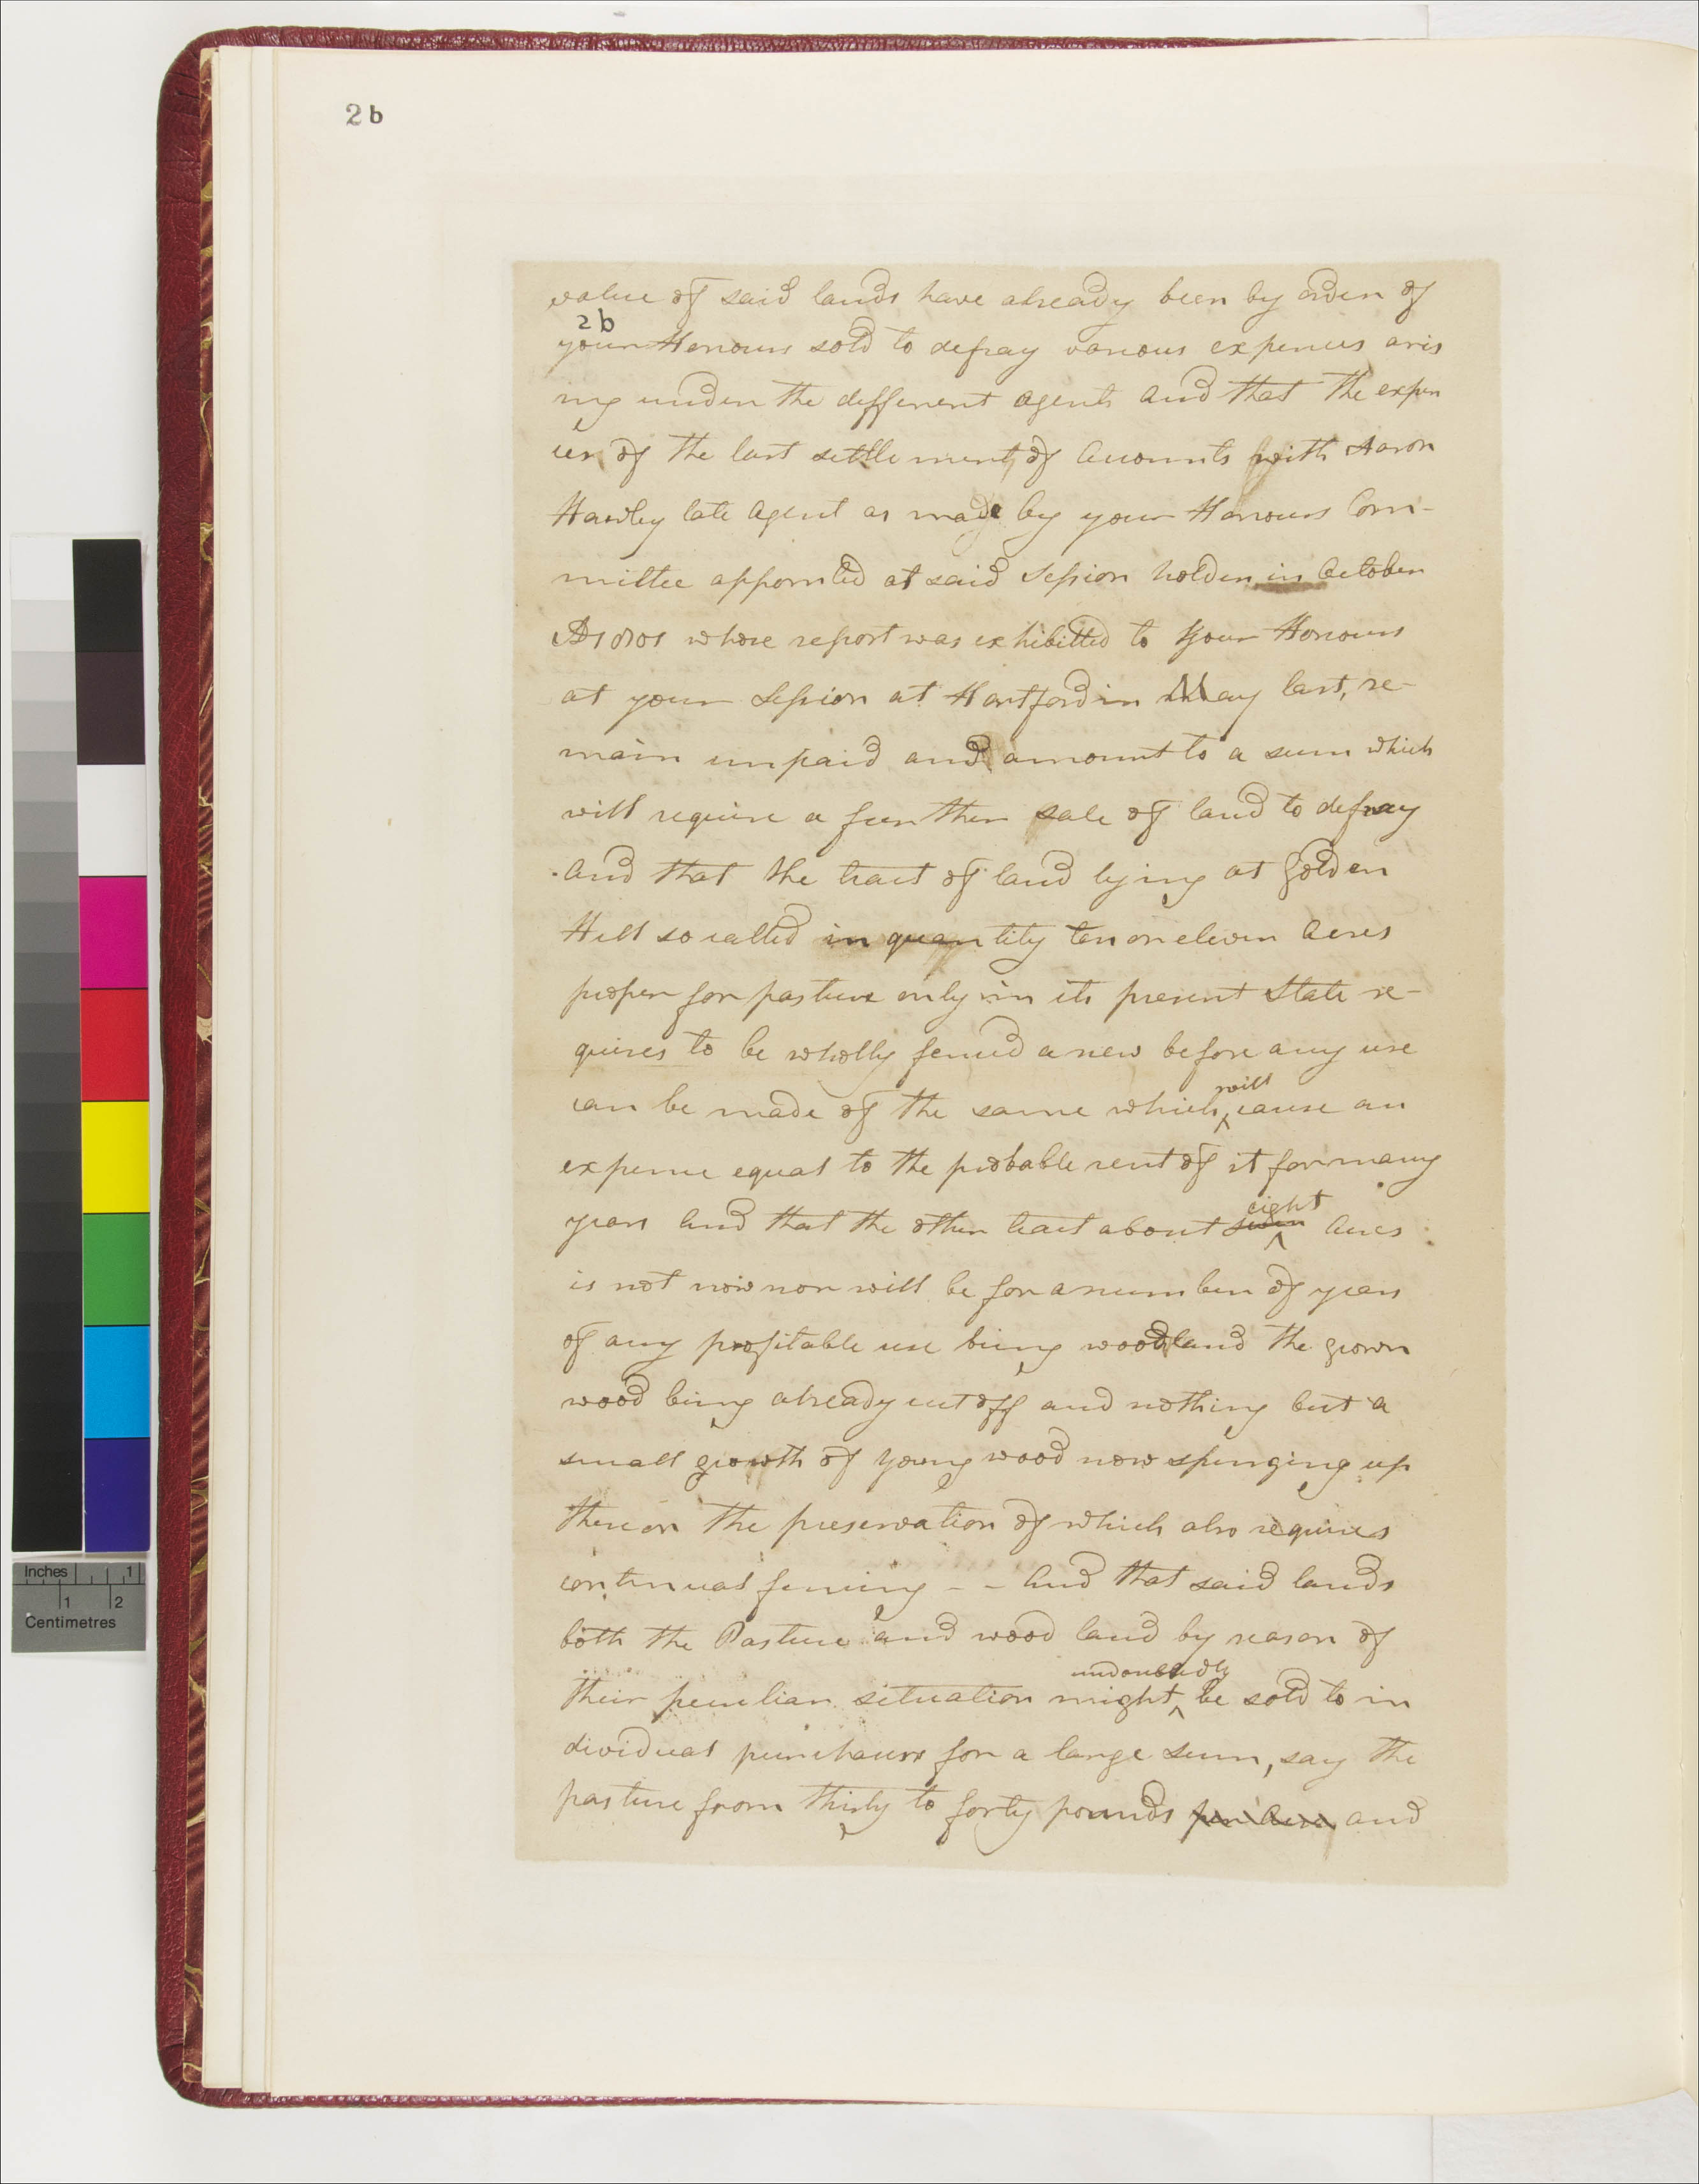 2 b
value of said lands have already been by order of
2 b
your Honours sold to defray various expences aris
ing under the different agents and that the expen
ces of the last settlement of Accounts with Aaron
Hawley late Agent as made by your Honours Com-
mittee appointed at said Session holden in October
AD 1801 whose report was exhibitted to your Honours
at your Session at Hartford in May last, re-
main unpaid and amount to a sum which
will require a further sale of land to defray
and that the tract of land lying at Golden
Hill so called in quantity ten or eleven Acres
proper for pasture only in its present State re-
quires to be wholly fenced a new before any use
will
can be made of the same which ^ cause an
expence equal to the probable rent of it for many
eight
years And that the other tract about seven ^ Acres
is not now nor will be for a number of years
of any profitable use being woodland the grown
wood being already cut off and nothing but a
small growth of young wood now springing up
thereon the preservation of which also requires
continual fencing - - And that said lands
both the Pasture and wood land by reason of
undoubtedly
their peculiar situation might ^ be sold to in
dividual purchasers for a large sum, say the
pasture from thirty to forty pounds per Acre and
Inches 1
1 2
Centimetres